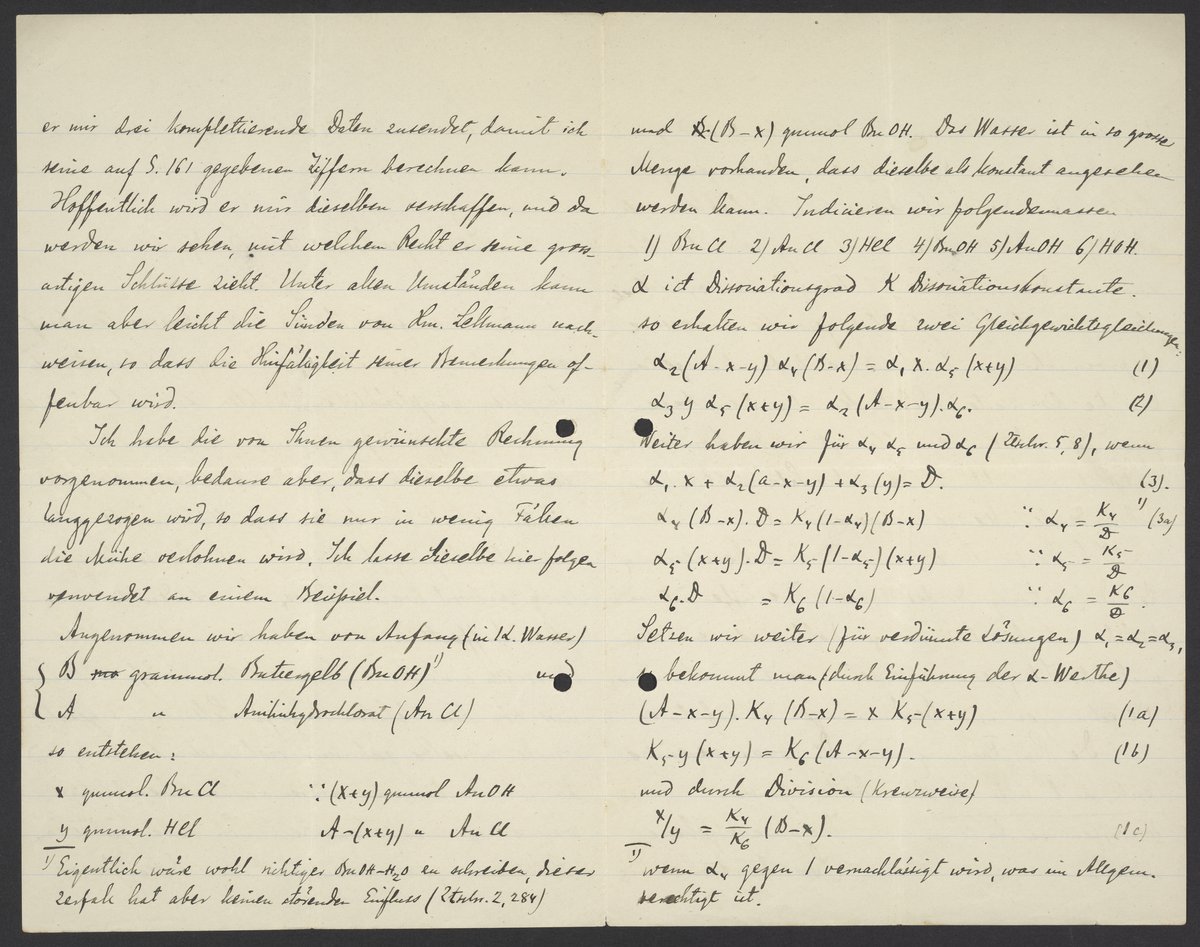 er mir drei komplettierende Daten zusendet, damit ich
seine auf S. 161 gegebenen Ziffern berechnen kann.
Hoffentlich wird er mir dieselben verschaffen, und da
werden wir sehen, mit welchem Recht er seine gross-
artigen Schlüsse zieht. Unter allen Umständen kann
man aber leicht die Sünden von Hrn. Lellmann nach-
weisen, so dass die Hinfälligkeit seiner Bemerkungen of-
fenbar wird.
Ich habe die von Ihnen gewünschte Rechnung
vorgenommen, bedaure aber, dass dieselbe etwas
langgezogen wird, so dass sie nur in wenig Fällen
die Mühe verlohnen wird. Ich lasse dieselbe hier folgen
verwendet an einem Beispiel.
Angenommen wir haben von Anfang (in 1 l. Wasser)
B grammol. Buttergelb (BuOH) 1) und
A " Anilinhydrochlorat (AnCl)
so entstehen:
x grmmol. BuCl ∵ (x+y) grmmol AnOH
y grmmol. HCl A-(x+y) " AnCl
1) Eigentlich wäre wohl richtiger BuOH-H2O zu schreiben, dieser
Zerfall hat aber keinen störenden Einfluss (Ztschr. 2, 284)
und (B-x) grmmol BuOH. Das Wasser ist in so grosse
Menge vorhanden, dass dieselbe als konstant angesehen
werden kann. Indicieren wir folgendermassen
1) BuCl 2) AnCl 3) HCl 4) BuOH 5) AnOH 6) HOH.
α ist Dissociationsgrad K Dissociationskonstante.
so erhalten wir folgende zwei Gleichgewichtsgleichungen:
α2 (A-x-y) α4 (B-x) = α1 x. α5 (x+y) (1)
α3 y α5 (x+y) = α2 (A-x-y). α6. (2)
Weiter haben wir für α4 α5 und α6 (Ztschr. 5, 8), wenn
α1. x + α2 (a-x-y) + α3 (y) = D. (3).
α4 (B-x). D = K4 (1-α4)(B-x) ∵ α4 = K4/D 1) (3a)
α5 (x+y). D = K5 (1-α5)(x+y) ∵ α5 = K5/D
α6. D = K6 (1-α6) ∵ α6 = K6/D.
Setzen wir weiter (für verdünnte Lösungen) α1 = α2 = α3,
so bekommt man (durch Einführung der α-Werthe)
(A-x-y). K4 (B-x) = x K5 (x+y) (1a)
K5 y (x+y) = K6 (A-x-y). (1b)
und durch Division (kreuzweise)
x/y = K4/K6 (B-x). (1c)
1) wenn α4 gegen 1 vernachlässigt wird, was im Allgem.
berechtigt ist.